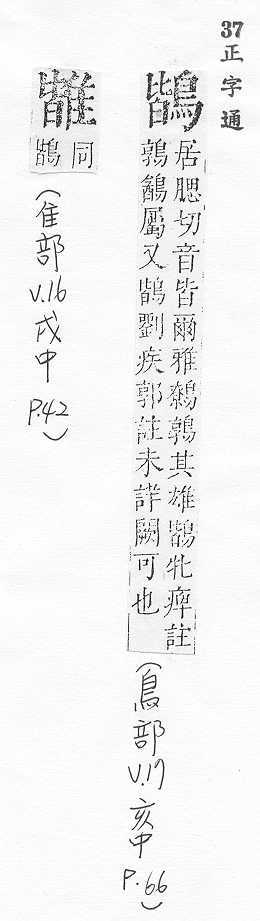 37 正字通
鶛
居腮切音皆爾雅鷯鶉其雄鶛牝痺註
鶉鷂屬又鶛劉疾郭註未詳闕可也
(鳥部 v.17 亥中 P.66)
䧱
同
鶛
(隹部 v.16 戌中 P.42)